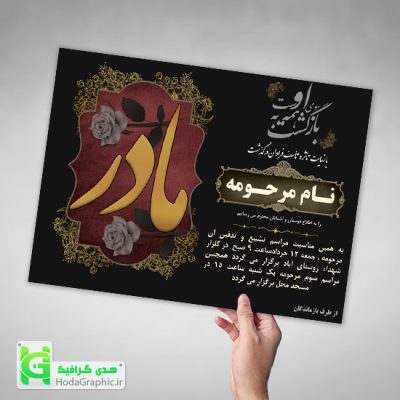 بازگشت همه به سوی اوست
با نهایت تاثر و تاسف فراوان درگذشت
مادر
نام مرحومه
را به اطلاع دوستان و آشنایان محترم می رسانیم
به همین مناسبت مراسم تشییع و تدفین آن
مرحومه ، جمعه ۱۲ خرداد ساعت ۹ صبح در گلزار
شهداء روستای آباد برگزار می گردد همچنین
مراسم سوم مرحومه یک شنبه ساعت ۱۵ در
مسجد محل برگزار می گردد
از طرف بازماندگان
هدی گرافیک
HodaGraphic.ir